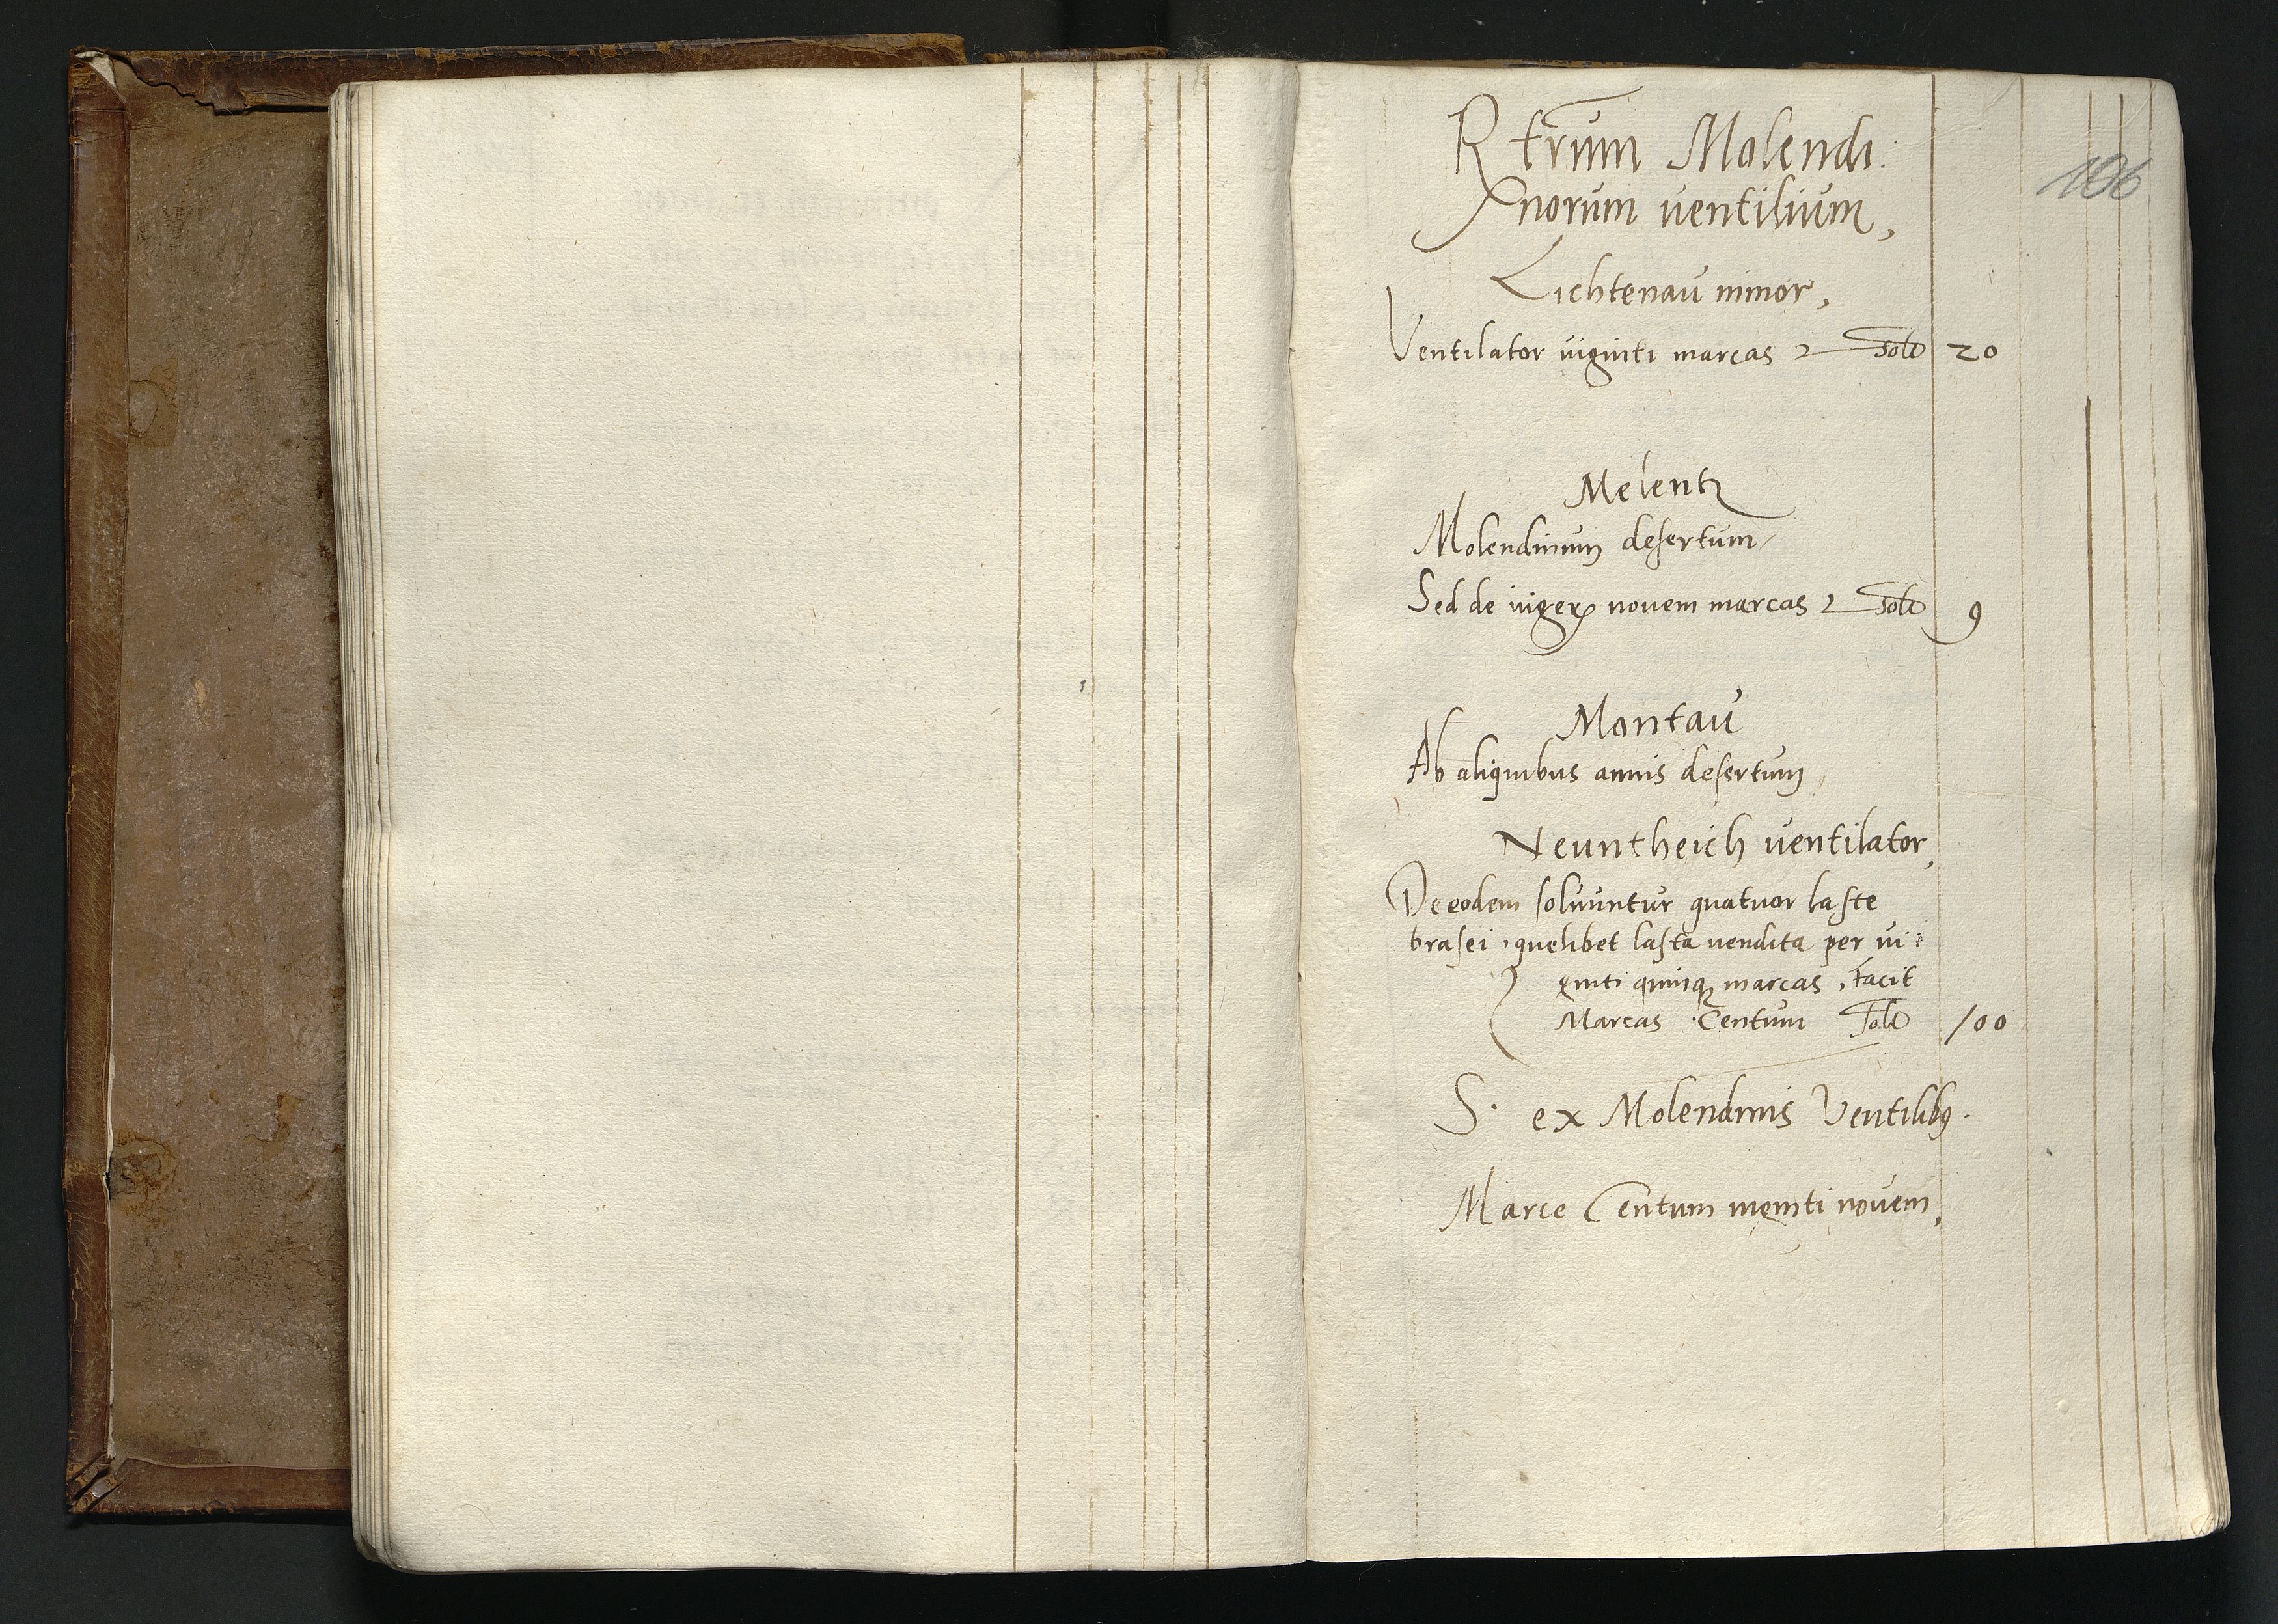 R trum Molendi:
norum ventilium,
106
Lichtenau minor,
Ventilator viginti marcas solt 20
Melentz
Molendinum desertum
Sed de iuger novem marcas solt 9
Montau
Ab aliquibus annis desertum,
Neuntheich ventilator,
De eodem solvuntur quatuor laste
brasei, quelibet lasta vendita per vi:
ginti quinq marcas, facit
Marcas Centum solt 100
S. ex Molendinis Ventilib9.
Marce Centum viginti novem,